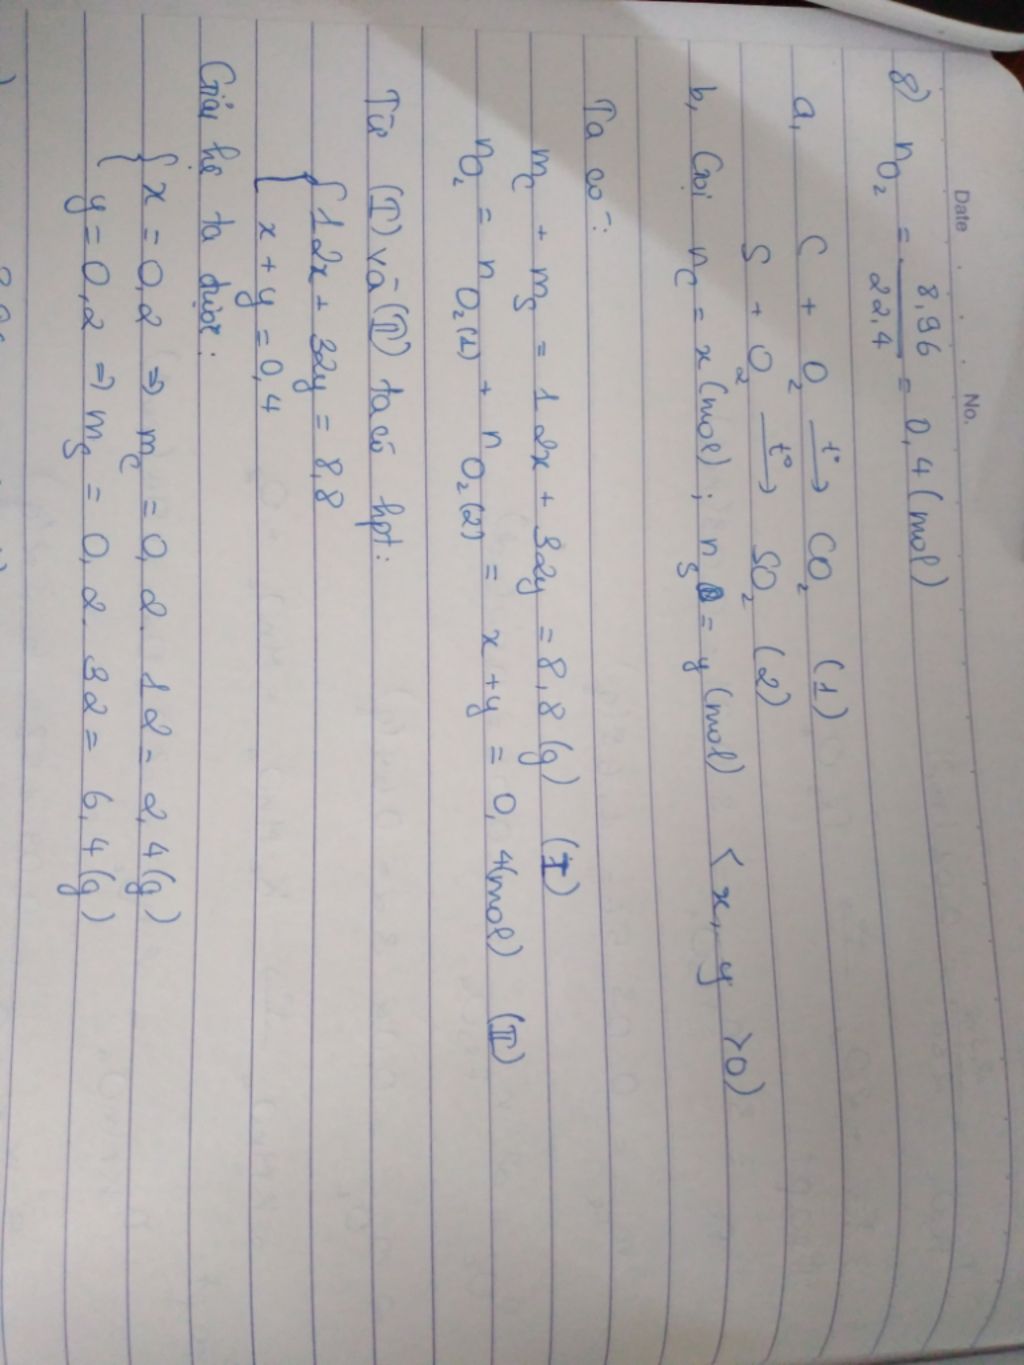 Date . . No.
8) nO₂ = 8,96/22,4 = 0,4 (mol)
a, C + O₂ —t°→ CO₂ (1)
S + O₂ —t°→ SO₂ (2)
b, Gọi nC = x (mol) ; nS = y (mol) < x, y >0)
Ta có:
mC + mS = 12x + 32y = 8,8 (g) (I)
nO₂ = nO₂(1) + nO₂(2) = x + y = 0,4(mol) (II)
Từ (I) và (II) ta có hpt:
{ 12x + 32y = 8,8
x + y = 0,4
Giải hệ ta được:
{ x = 0,2 ⇒ mC = 0,2 . 12 = 2,4(g)
y = 0,2 ⇒ mS = 0,2 . 32 = 6,4(g)